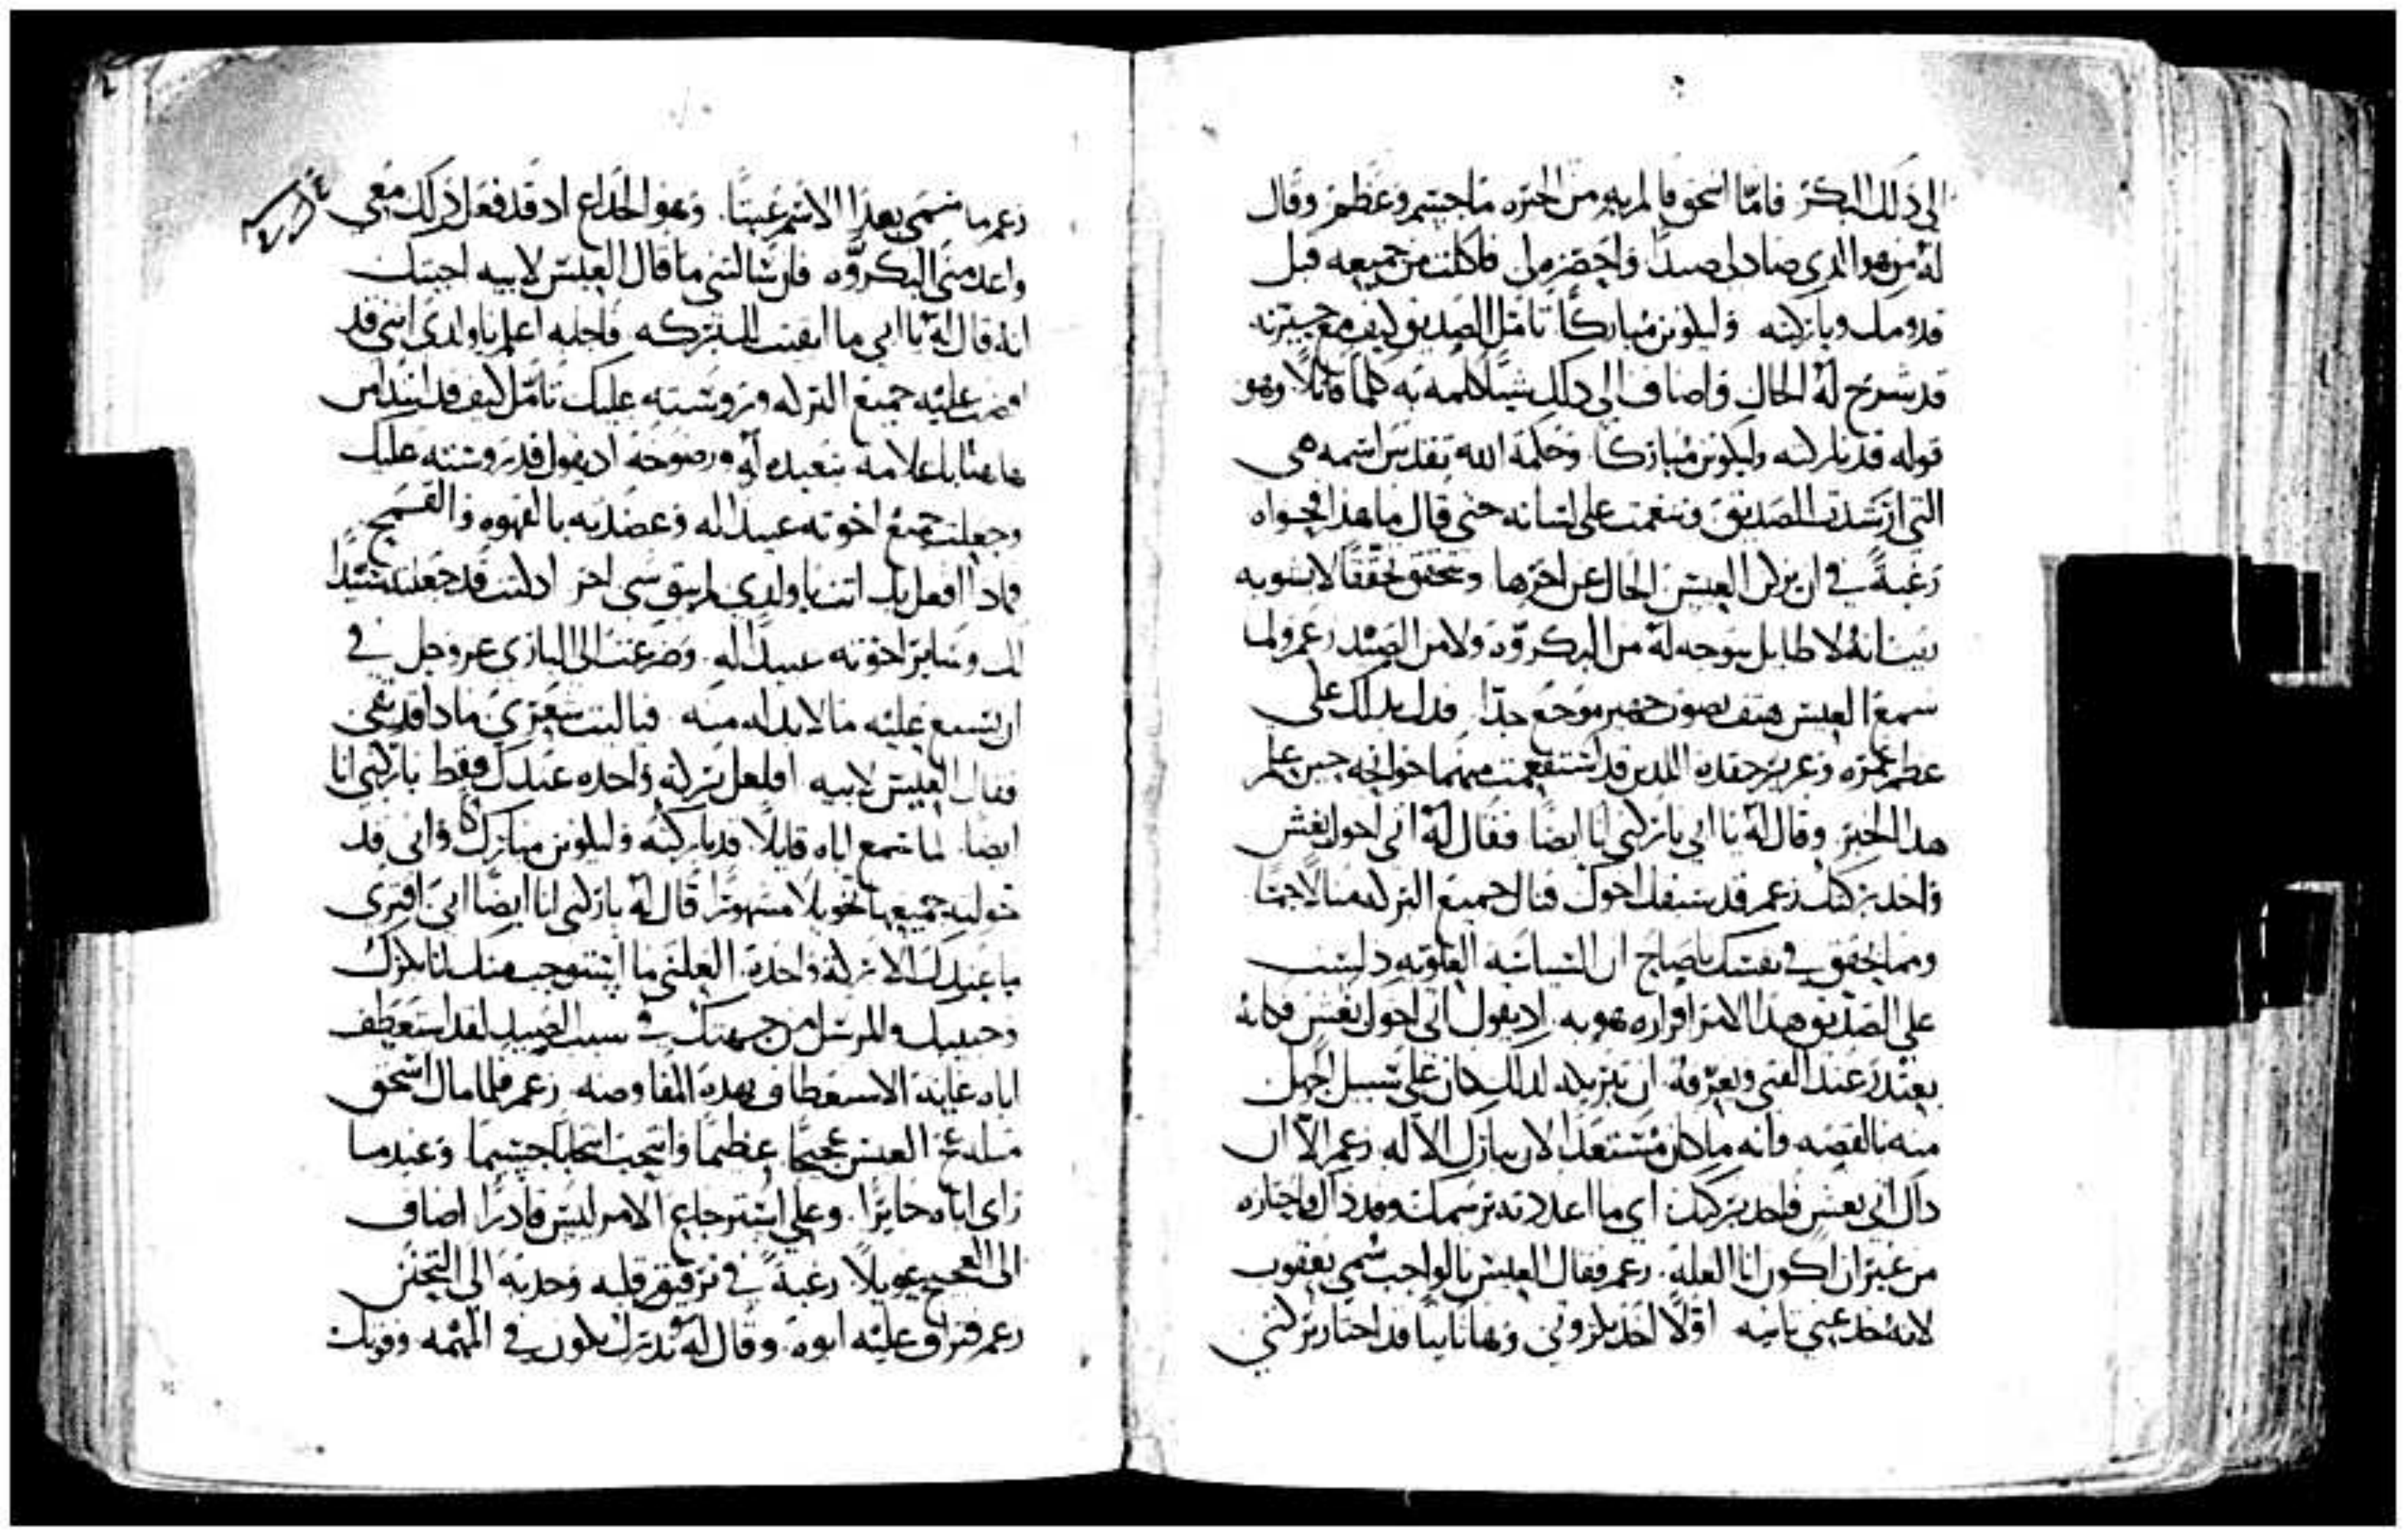 الى ذلك البكر فاما اسحق فالم به من الحيره ما جسم وعظم وقال
له من هو الذي صاد لي صيدا واحضر لي فاكلت من جميعه قبل
قدومك وباركته وليكونن مباركا تامل الصديق كيف مع حيرته
قد شرح له الحال واضاف الى ذلك شيا كلمه به كلما قايلا وهو
قوله قد باركته وليكونن مباركا وحكمة الله تقدس اسمه هي
التي ارشدت الصديق ونغمت على لسانه حتى قال ما هذا فحواه
رغبة في ان يركن العيس الحال عن اخرها وتحقق تحققا لا يشوبه
انه لا طايل يتوجه له من البكروه ولا من الصيد زعم ولما
سمع العيس هتف بصوت جهير موجع جدا فدل بذلك على
عظم غمره وغزير حقده الذين قد استفعمت منهما جوانحه حين علم
هذا الخبر وقال له يا ابي باركني انا ايضا فقال له اتى اخوك بغش
واخذ بركتك زعم قد سبقك اخوك فنال جميع البركه منالا جما
ومما يحقق في نفسك يا صاح ان السياسه العلويه
على الصديق هذا الامر اقراره هو به اذ يقول اتى اخوك بغش فكانه
يعتذر عند الفتى ويعرفه ان تبريكه لذلك كان على سبيل الجهل
منه بالقصه وانه ما كان مستعدا لان يبارك الا له زعم الا ان
ذاك اتى بغش فاخذ بركتك اي ما اعددته برسمك وقد ذاك واجتازه
من غير ان اكون انا العله زعم فقال العيس بالواجب سمي يعقوب
لانه خدعني ثانيه اولا اخذ بكروتي وها ثانيا قد اختار بركتي
زعم ما سمي بهذا الاسم عبثا وهو الخداع اذ قد فعل ذلك معي
واعدمني البكروه فان سالتني ما قال العيس لابيه اجبتك
انه قال له يا ابي ما ابقيت لي بركه فاجابه اعلم يا ولدي انني قد
افضت عليه جميع البركه وروسته عليك تامل كيف قد ابتدا من
هاهنا باعلامه بتعبده له ورضوخه اذ يقول قد روسته عليك
وجعلت جميع اخوته عبيدا له وعضدته بالقهوه والقمح
فماذا افعل بك انت يا ولدي لم يبق شي اخر اذ كنت قد جعلته سيدا
لك وساير اخوته عبيدا له وضرعت الى الباري عز وجل في
ان تتسع عليه ما لا بد له منه فيا ليت شعري ماذا قد بقي
فقال العيس لابيه افلعل بركه واحده عندك فقط باركني انا
ايضا لما سمع اباه قايلا قد باركته وليكونن مباركا واني قد
خولته جميعها تخويلا قال له باركني انا ايضا ابي افترى
ما عندك الا بركة واحدة العلني ما استوجب منك انا بكرك
وحبيبك والمرسل من جهتك في سبب الصيد لقد استعطف
اباه غاية الاستعطاف بهذه المفاوضه زعم فلما مال اسحق
العيس عجيجا عظيما وانتحب انتحابا جسيما وعندما
راى اباه حايرا وعلى استرجاع الامر ليس قادرا اضاف
الى العجيج عويلا رغبة في ترقيق قلبه وحدبه الى التحنن
زعم فراف عليه ابوه وقال له تبرك يكون في المهمه وفوقك